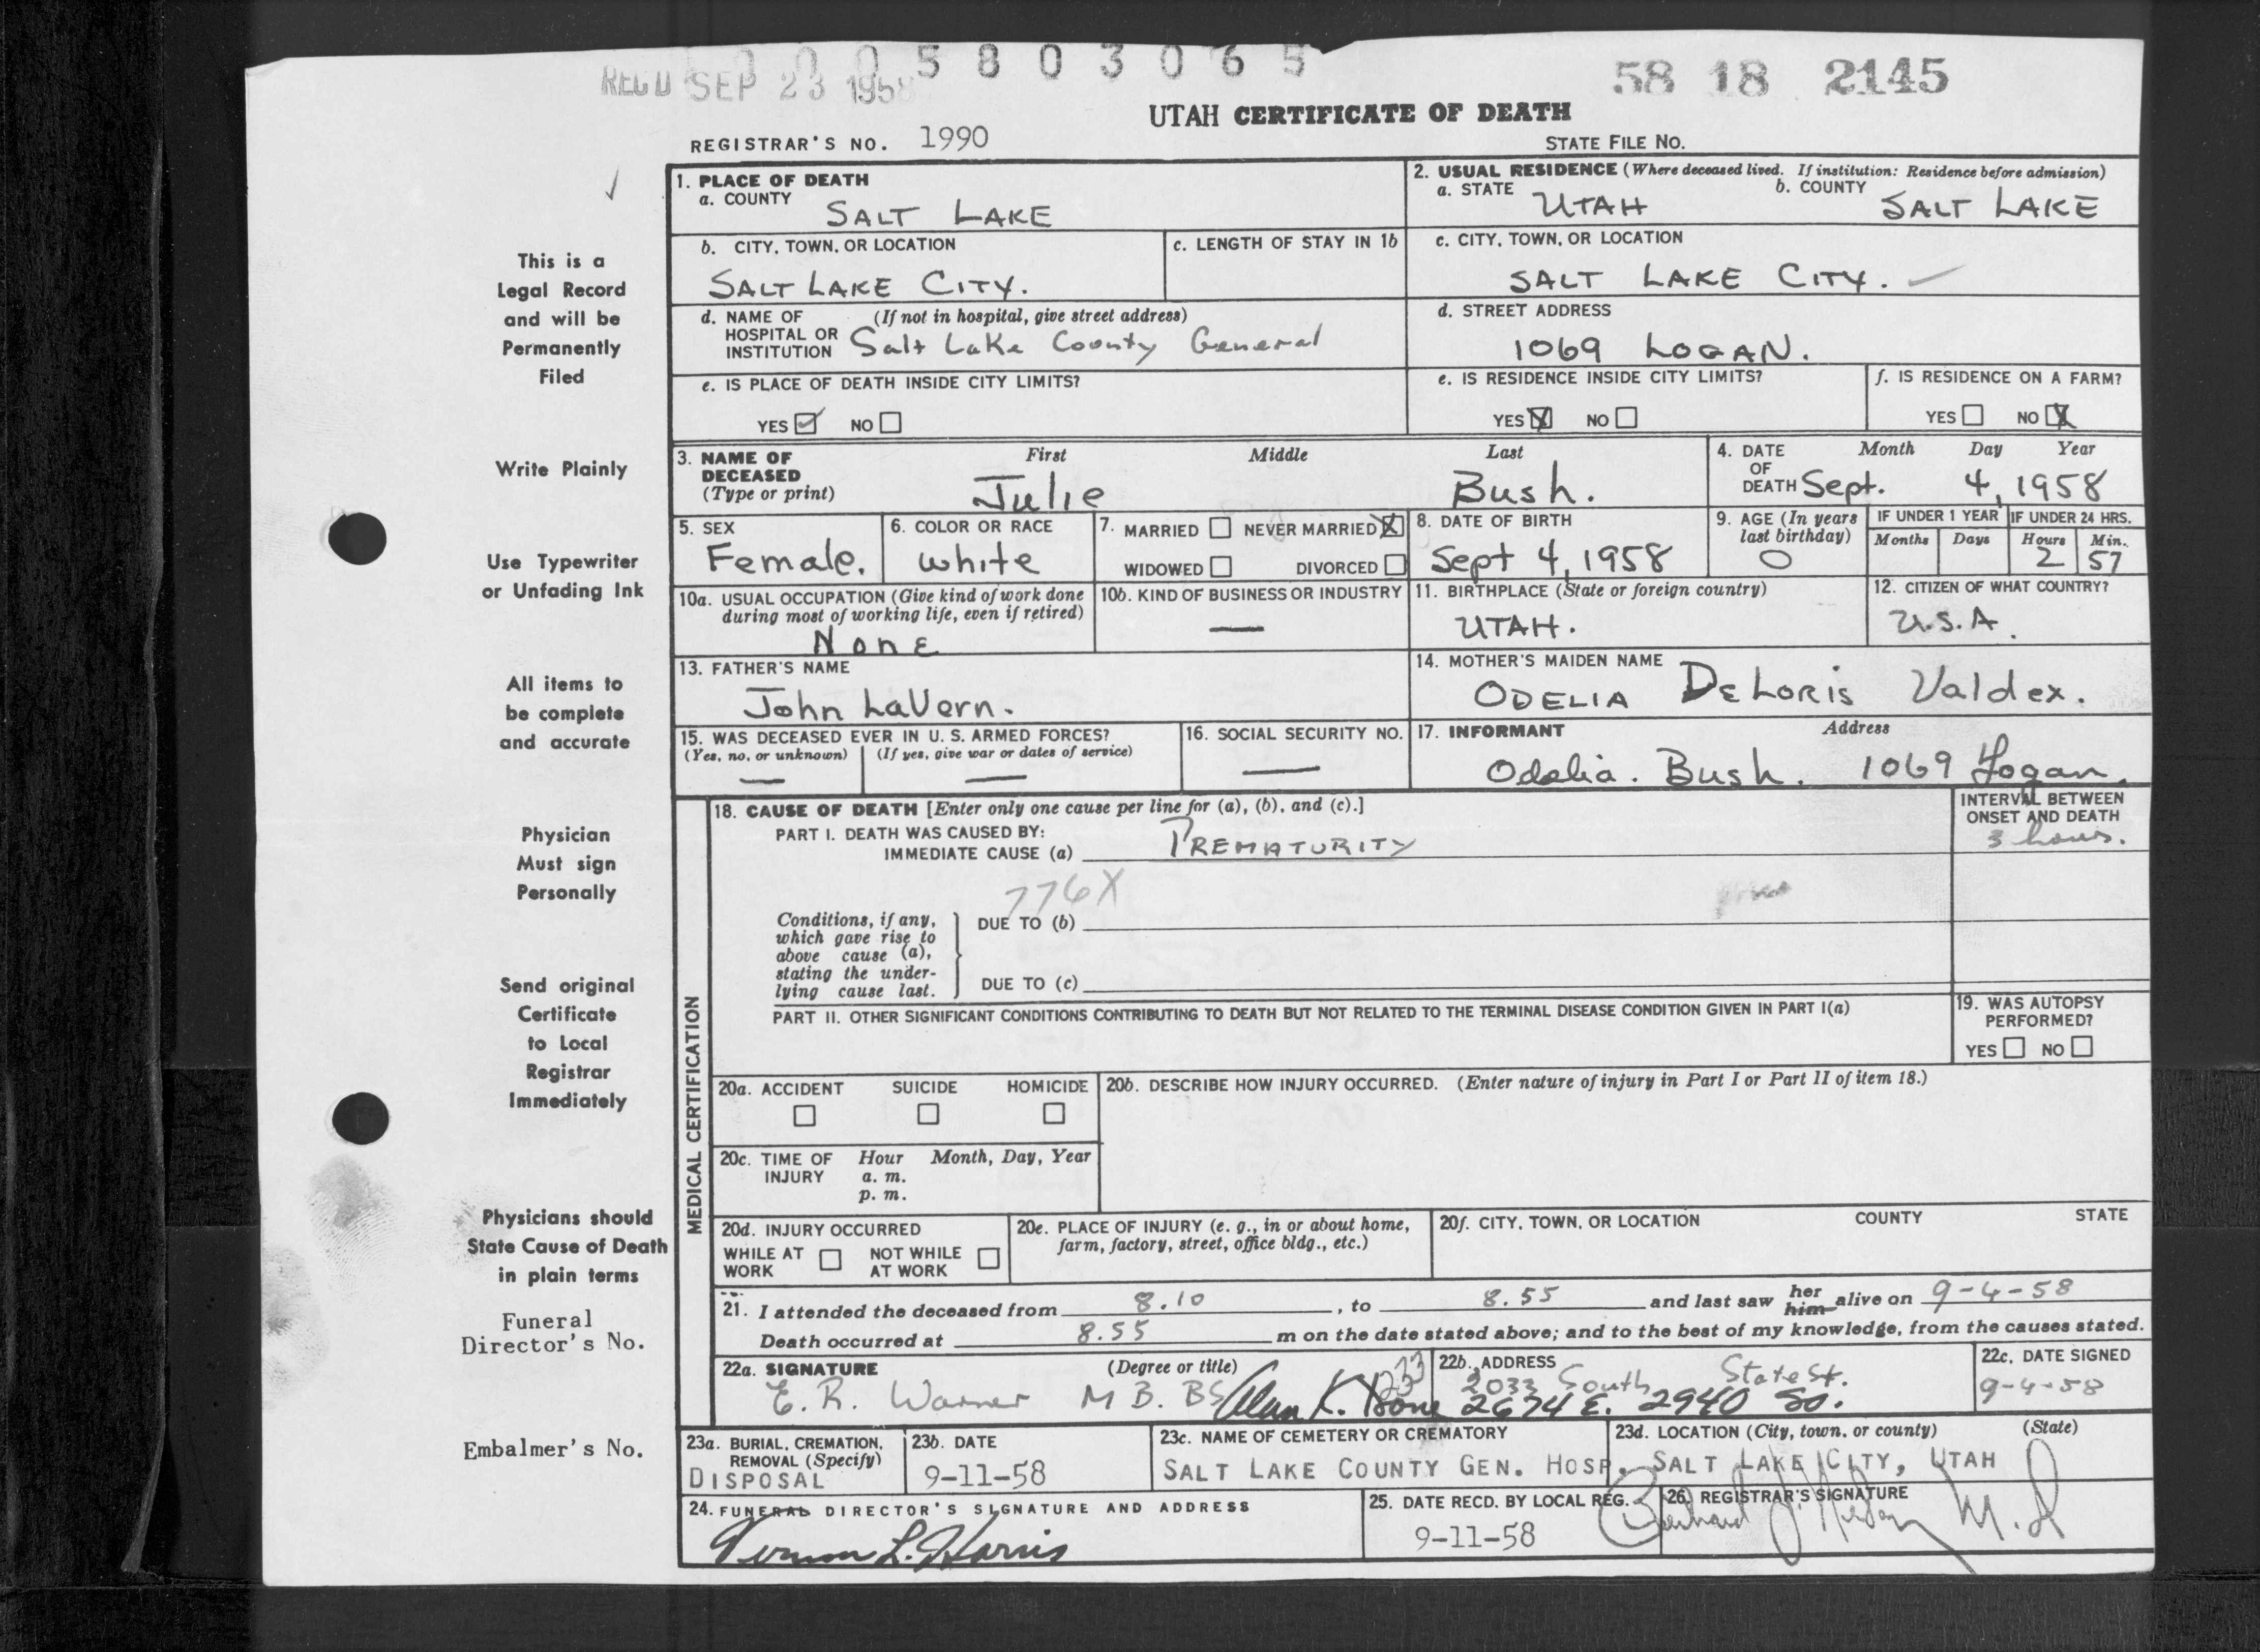 0 0 0 5 8 0 3 0 6 5
REC'D SEP 23 1958
58 18 2145
UTAH CERTIFICATE OF DEATH
REGISTRAR'S NO. 1990
STATE FILE NO.
This is a
Legal Record
and will be
Permanently
Filed
Write Plainly
Use Typewriter
or Unfading Ink
All items to
be complete
and accurate
Physician
Must sign
Personally
Send original
Certificate
to Local
Registrar
Immediately
Physicians should
State Cause of Death
in plain terms
Funeral
Director's No.
Embalmer's No.
1. PLACE OF DEATH
a. COUNTY
SALT LAKE
2. USUAL RESIDENCE (Where deceased lived. If institution: Residence before admission)
a. STATE UTAH b. COUNTY SALT LAKE
b. CITY, TOWN, OR LOCATION
SALT LAKE CITY.
c. LENGTH OF STAY IN 1b
c. CITY, TOWN, OR LOCATION
SALT LAKE CITY.
d. NAME OF (If not in hospital, give street address)
HOSPITAL OR
INSTITUTION Salt Lake County General
d. STREET ADDRESS
1069 LOGAN.
e. IS PLACE OF DEATH INSIDE CITY LIMITS?
YES NO
e. IS RESIDENCE INSIDE CITY LIMITS?
YES NO
f. IS RESIDENCE ON A FARM?
YES NO
3. NAME OF DECEASED
(Type or print)
First Middle Last
Julie Bush.
4. DATE OF DEATH
Month Day Year
Sept. 4, 1958
5. SEX
Female.
6. COLOR OR RACE
white
7. MARRIED NEVER MARRIED
WIDOWED DIVORCED
8. DATE OF BIRTH
Sept 4, 1958
9. AGE (In years
last birthday)
0
IF UNDER 1 YEAR
Months Days
IF UNDER 24 HRS.
Hours Min.
2 57
10a. USUAL OCCUPATION (Give kind of work done
during most of working life, even if retired)
None
10b. KIND OF BUSINESS OR INDUSTRY
—
11. BIRTHPLACE (State or foreign country)
UTAH.
12. CITIZEN OF WHAT COUNTRY?
U.S.A.
13. FATHER'S NAME
John LaVern.
14. MOTHER'S MAIDEN NAME
ODELIA DELORIS Valdex.
15. WAS DECEASED EVER IN U. S. ARMED FORCES?
(Yes, no, or unknown) (If yes, give war or dates of service)
— —
16. SOCIAL SECURITY NO.
—
17. INFORMANT Address
Odelia. Bush. 1069 Logan.
MEDICAL CERTIFICATION
18. CAUSE OF DEATH [Enter only one cause per line for (a), (b), and (c).]
PART I. DEATH WAS CAUSED BY:
IMMEDIATE CAUSE (a) PREMATURITY
INTERVAL BETWEEN
ONSET AND DEATH
3 hours.
776X
Conditions, if any,
which gave rise to
above cause (a),
stating the under-
lying cause last.
DUE TO (b)
DUE TO (c)
PART II. OTHER SIGNIFICANT CONDITIONS CONTRIBUTING TO DEATH BUT NOT RELATED TO THE TERMINAL DISEASE CONDITION GIVEN IN PART I(a)
19. WAS AUTOPSY
PERFORMED?
YES NO
20a. ACCIDENT SUICIDE HOMICIDE
20b. DESCRIBE HOW INJURY OCCURRED. (Enter nature of injury in Part I or Part II of item 18.)
20c. TIME OF INJURY
Hour Month, Day, Year
a. m.
p. m.
20d. INJURY OCCURRED
WHILE AT WORK NOT WHILE AT WORK
20e. PLACE OF INJURY (e. g., in or about home,
farm, factory, street, office bldg., etc.)
20f. CITY, TOWN, OR LOCATION COUNTY STATE
21. I attended the deceased from 8.10, to 8.55 and last saw her him alive on 9-4-58
Death occurred at 8.55 m on the date stated above; and to the best of my knowledge, from the causes stated.
22a. SIGNATURE (Degree or title)
E. R. Warner M B. BS Alan K. Done
22b. ADDRESS
2033 South State St.
2674 E. 2940 So.
22c. DATE SIGNED
9-4-58
23a. BURIAL, CREMATION,
REMOVAL (Specify)
DISPOSAL
23b. DATE
9-11-58
23c. NAME OF CEMETERY OR CREMATORY
SALT LAKE COUNTY GEN. HOSP.
23d. LOCATION (City, town, or county) (State)
SALT LAKE CITY, UTAH
24. FUNERAL DIRECTOR'S SIGNATURE AND ADDRESS
Vernon L. Harris
25. DATE RECD. BY LOCAL REG.
9-11-58
26. REGISTRAR'S SIGNATURE
M.D